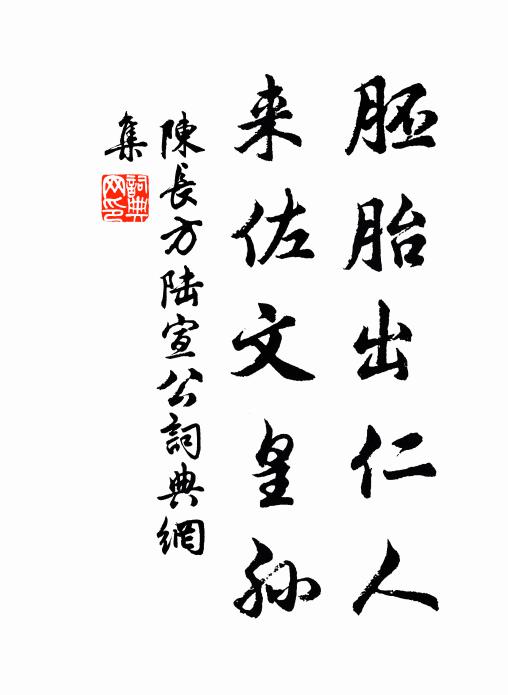 胚胎出仁人
来佐文皇孙
陳長方陸宣公詞典網
集
詞典
网印